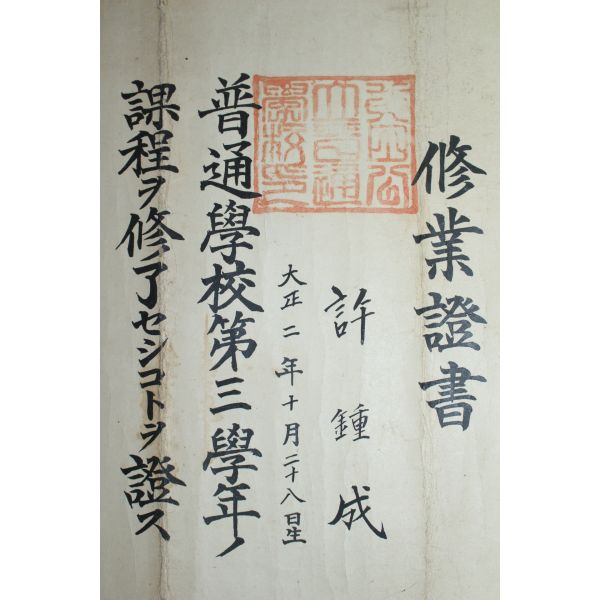 修業證書
許鍾成
大正二年十月二十八日生
普通學校第三學年ノ
課程ヲ修了セシコトヲ證ス